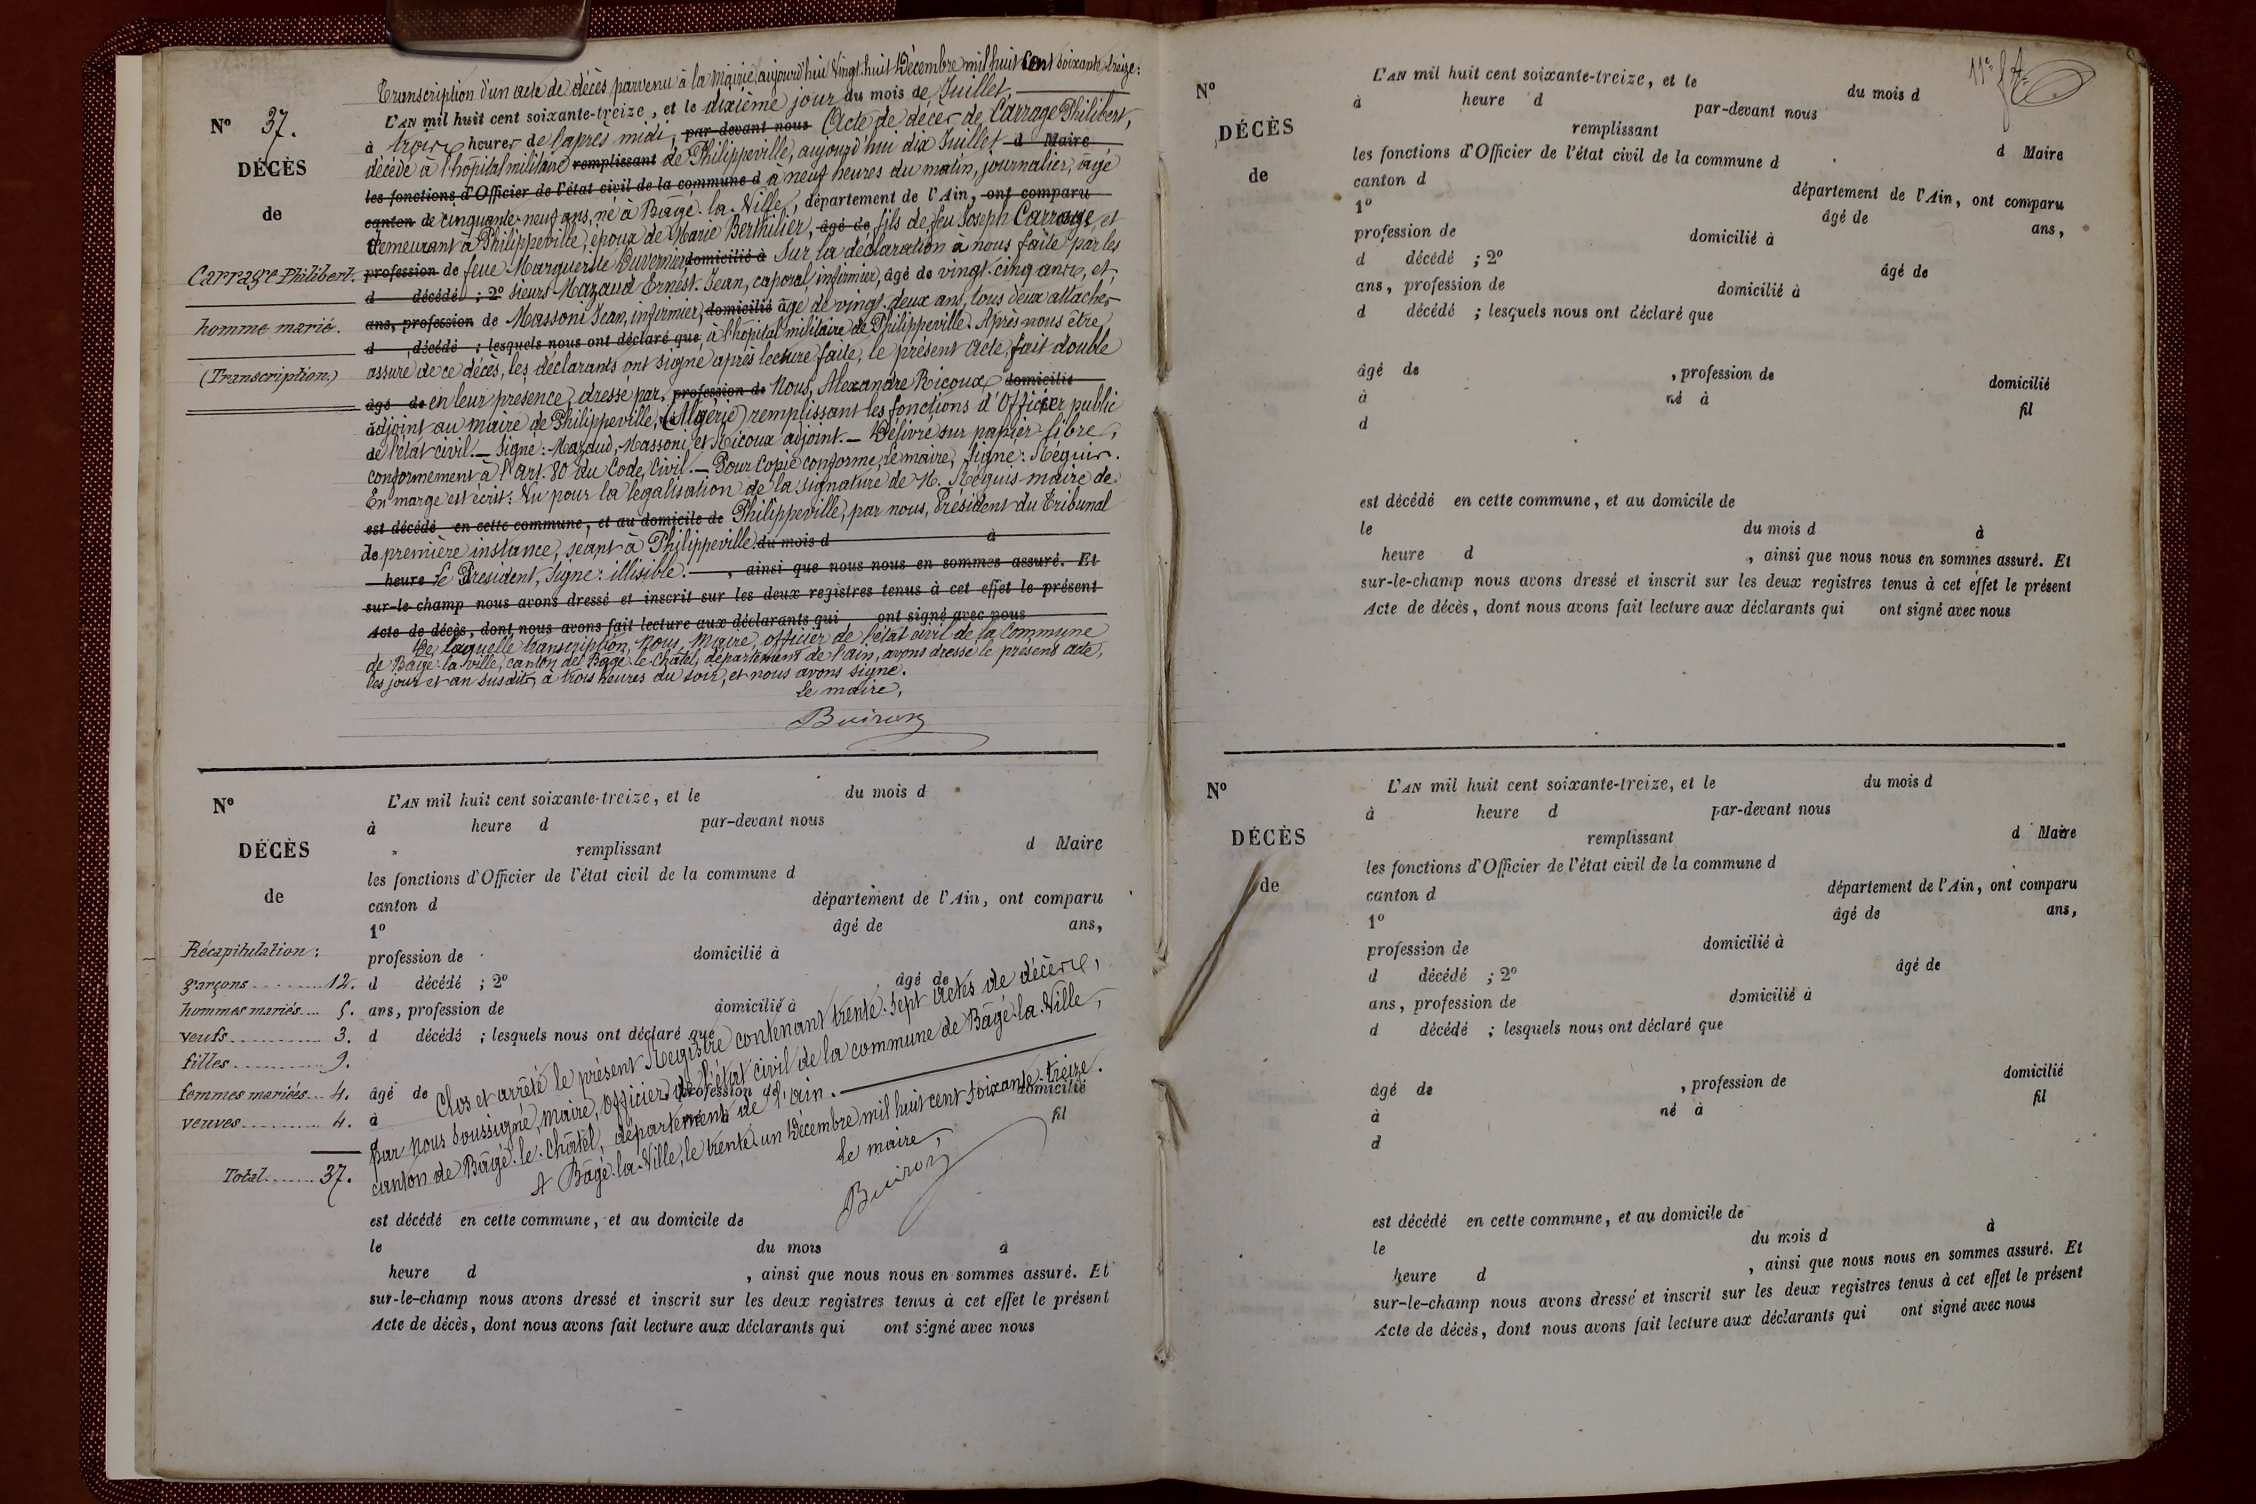 Transcription d'un acte de décès parvenu à la mairie, aujourd'hui vingt-huit Décembre mil huit Cent soixante treize:
L'AN mil huit cent soixante-treize, et le dixième jour du mois de Juillet,
N° 37.
à trois heures de l'après midi, par-devant nous Acte de décès de Carrage Philibert,
décédé à l'hôpital militaire remplissant de Philippeville, aujourd'hui dix Juillet d Maire
DÉCÈS
les fonctions d'Officier de l'état civil de la commune d à neuf heures du matin, journalier, âgé
canton de cinquante-neuf ans, né à Bâgé-la-Ville, département de l'Ain, ont comparu
de
demeurant à Philippeville, époux de Marie Berthilier, âgé de fils de feu Joseph Carrage, et
Carrage Philibert.
profession de feue Marguerite Duvernay domicilié à Sur la déclaration à nous faite par les
d décédé ; 2° sieurs Mazaud Ernest-Jean, caporal infirmier, âgé de vingt-cinq ans, et
homme marié.
ans, profession de Massoni Jean, infirmier, domicilié âgé de vingt-deux ans, tous deux attachés
d décédé ; lesquels nous ont déclaré que à l'hôpital militaire de Philippeville. Après nous être
(Transcription.)
assuré de ce décès, les déclarants ont signé après lecture faite, le présent acte, fait double
âgé de en leur présence, dressé par, profession de Nous, Alexandre Ricoux domicilié
adjoint au maire de Philippeville, (Algérie) remplissant les fonctions d'Officier public
de l'état civil. — Signé: Mazaud, Massoni et Ricoux adjoint. — Délivré sur papier libre,
conformement à l'art. 80 du Code Civil. — Pour Copie conforme, le maire, signé: Réguis.
En marge est écrit: Vu pour la légalisation de la signature de M. Réguis maire de
est décédé en cette commune, et au domicile de Philippeville, par nous, Président du Tribunal
de première instance, séant à Philippeville. du mois d à
heure Le Président, signé: illisible. — , ainsi que nous nous en sommes assuré. Et
sur-le-champ nous avons dressé et inscrit sur les deux registres tenus à cet effet le présent
Acte de décès, dont nous avons fait lecture aux déclarants qui ont signé avec nous
De laquelle transcription, Nous, Maire, officier de l'état civil de la Commune
de Bâgé-la-Ville, canton de Bâgé-le-Châtel, département de l'ain, avons dressé le présent acte,
les jour et an susdits, à trois heures du soir, et nous avons signé.
Le maire,
Buiron
N°
L'AN mil huit cent soixante-treize, et le du mois d
à heure d par-devant nous
DÉCÈS
remplissant d Maire
les fonctions d'Officier de l'état civil de la commune d
de
canton d département de l'Ain, ont comparu
1° âgé de ans,
Récapitulation:
profession de domicilié à
garçons ......... 12.
d décédé ; 2° âgé de
hommes mariés .... 5.
ans, profession de domicilié à
veufs ............ 3.
d décédé ; lesquels nous ont déclaré que
filles ........... 9.
femmes mariées ... 4.
âgé de profession de domicilié
veuves ........... 4.
à né à fil
d
Total ....... 37.
Clos et arrêté le présent Registre contenant trente-sept actes de décès,
par Nous soussigné, Maire, Officier de l'état civil de la commune de Bâgé-la-Ville,
canton de Bâgé-le-Châtel, département de l'ain.
A Bâgé-la-Ville, le trente-un Décembre mil huit cent soixante-treize.
Le maire,
Buiron
est décédé en cette commune, et au domicile de
le du mois à
heure d , ainsi que nous nous en sommes assuré. Et
sur-le-champ nous avons dressé et inscrit sur les deux registres tenus à cet effet le présent
Acte de décès, dont nous avons fait lecture aux déclarants qui ont signé avec nous
11e
N°
L'AN mil huit cent soixante-treize, et le du mois d
à heure d par-devant nous
DÉCÈS
remplissant d Maire
les fonctions d'Officier de l'état civil de la commune d
de
canton d département de l'Ain, ont comparu
1° âgé de ans,
profession de domicilié à
d décédé ; 2° âgé de
ans, profession de domicilié à
d décédé ; lesquels nous ont déclaré que
âgé de , profession de domicilié
à né à fil
d
est décédé en cette commune, et au domicile de
le du mois d à
heure d , ainsi que nous nous en sommes assuré. Et
sur-le-champ nous avons dressé et inscrit sur les deux registres tenus à cet effet le présent
Acte de décès, dont nous avons fait lecture aux déclarants qui ont signé avec nous
N°
L'AN mil huit cent soixante-treize, et le du mois d
à heure d par-devant nous
DÉCÈS
remplissant d Maire
les fonctions d'Officier de l'état civil de la commune d
de
canton d département de l'Ain, ont comparu
1° âgé de ans,
profession de domicilié à
d décédé ; 2° âgé de
ans, profession de domicilié à
d décédé ; lesquels nous ont déclaré que
âgé de , profession de domicilié
à né à fil
d
est décédé en cette commune, et au domicile de
le du mois d à
heure d , ainsi que nous nous en sommes assuré. Et
sur-le-champ nous avons dressé et inscrit sur les deux registres tenus à cet effet le présent
Acte de décès, dont nous avons fait lecture aux déclarants qui ont signé avec nous